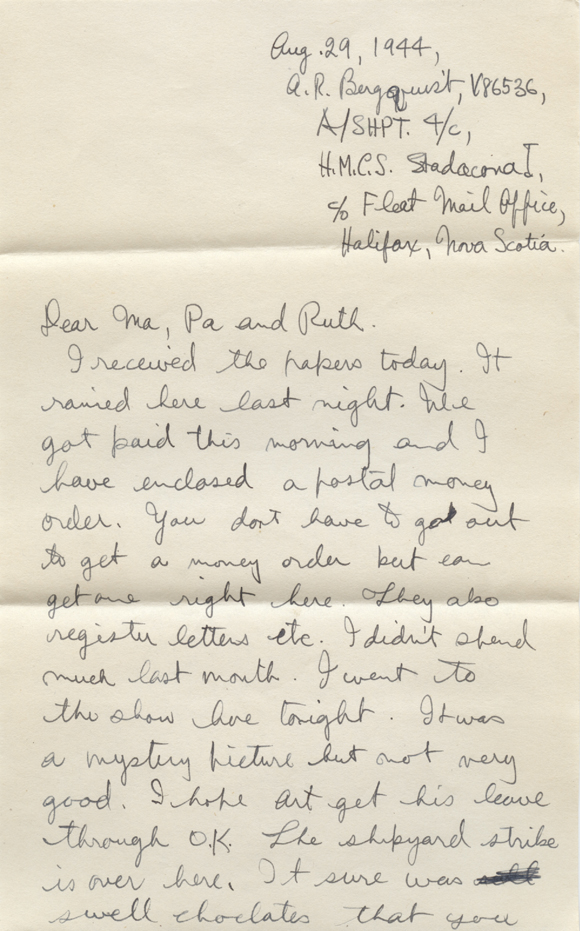 Aug. 29, 1944,
A.R. Bergquist, V86536,
A/SHPT. 4/c,
H.M.C.S. Stadacona I,
c/o Fleet Mail Office,
Halifax, Nova Scotia.
Dear Ma, Pa and Ruth.
I received the papers today. It
rained here last night. We
got paid this morning and I
have enclosed a postal money
order. You dont have to go out
to get a money order but can
get one right here. They also
register letters etc. I didn't spend
much last month. I went to
the show here tonight. It was
a mystery picture but not very
good. I hope Art get his leave
through O.K. The shipyard strike
is over here. It sure was
swell choclates that you